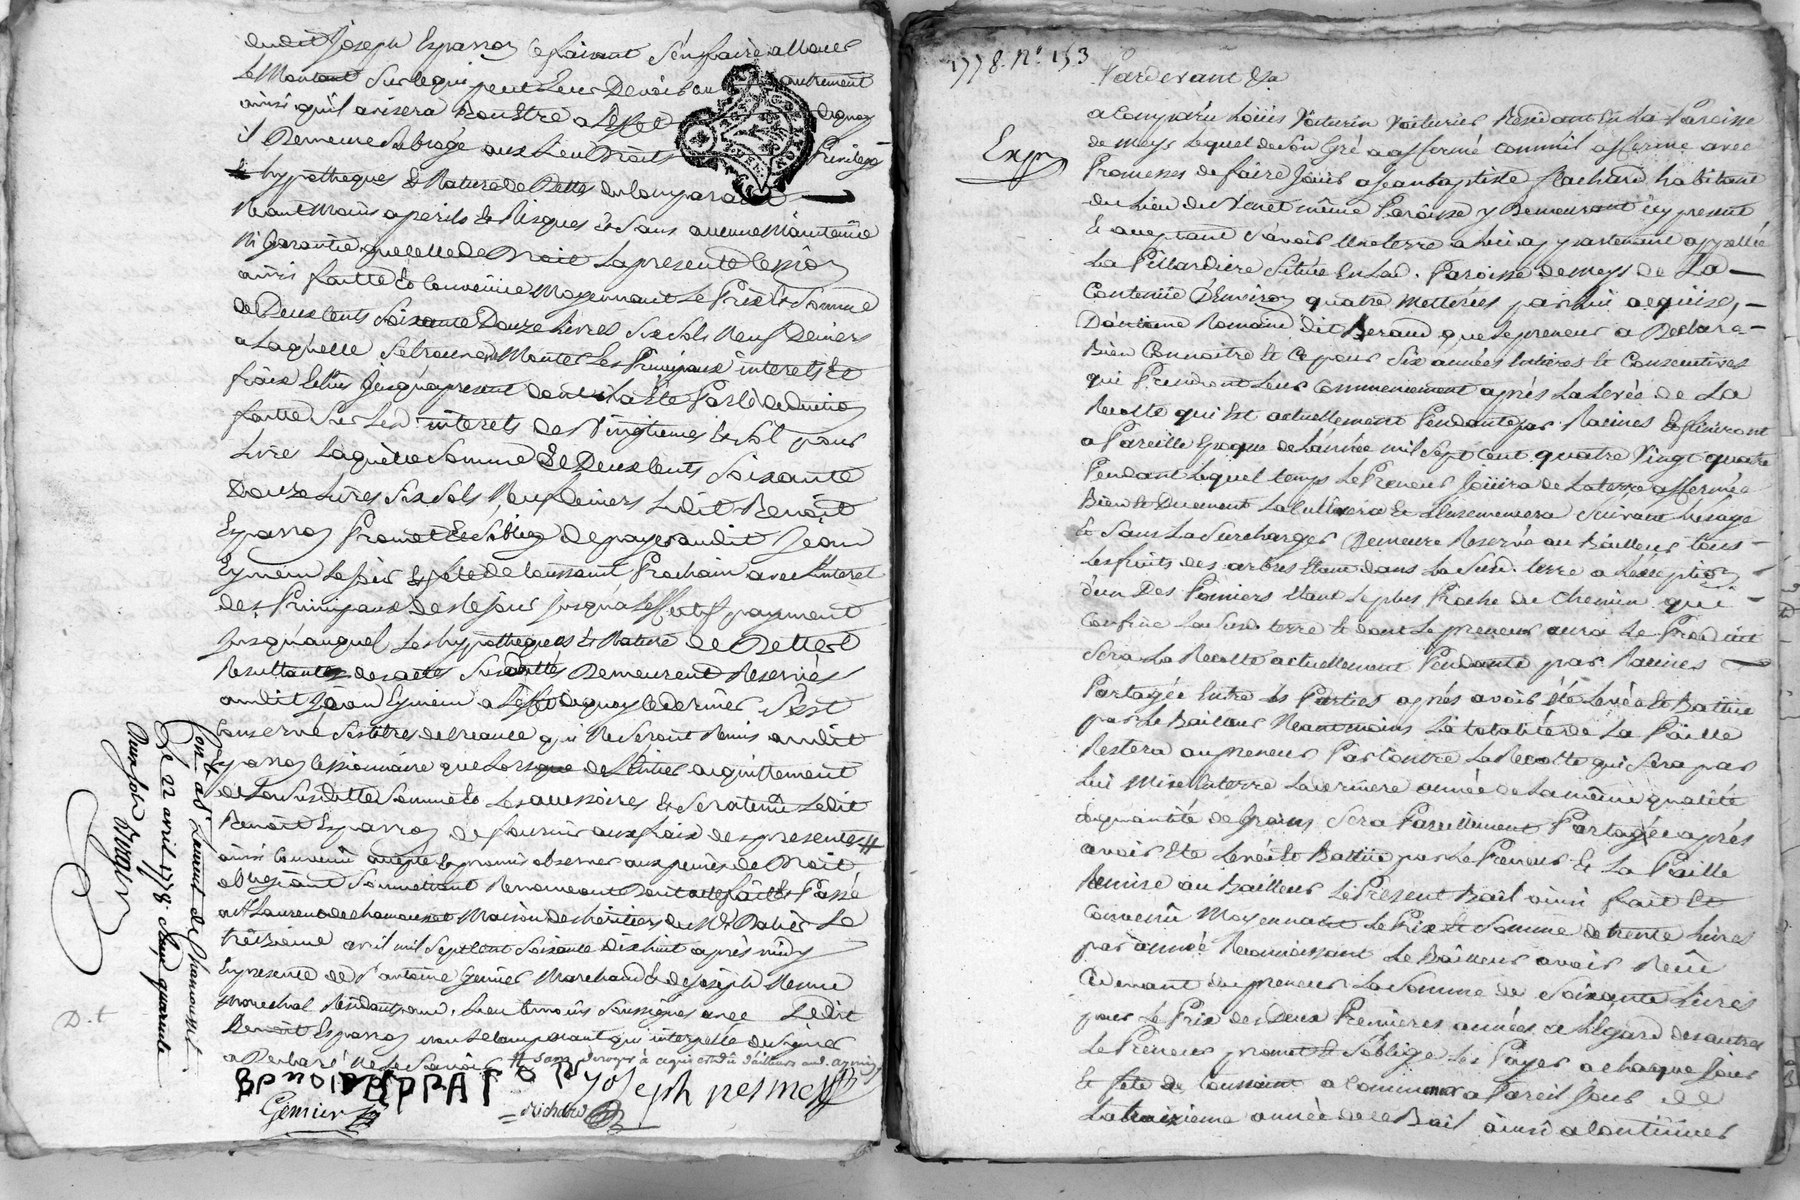 dudit Joseph Esparron ce faisant s'en faire allouer
le Montant sur ce qui peut leur Devoir ou autrement
ainsi qu'il avisera bon Estre a l'effet dequoy
il Demeure subrogé aux Lieu Droits Privileges
hypotheques & Nature de Dettes du Comparant
Neantmoins a perils & Risques & sans aucune Maintenüe
Ni Garantie que celle de Droit La presente Cession
ainsi faitte & Convenüe Moyennant Le Prix & Somme
de Deux Cents Soixante Douze Livres Six Sols Neuf Deniers
a Laquelle se trouvent Monter Les Principaux interets Et
fraix Jusqu'a present deduction
faitte sur Les d. interets des Vingtiemes & Sol pour
Livre Laquelle Somme De Deux Cents Soixante
Douze Livres Six Sols Neuf Deniers Ledit Benoit
Esparron Promet & s'oblige de payer audit Jean
Eymein Le Jour & fete de toussaint Prochain avec L'interet
des Principaux de ce Jour Jusqu'a L'effectif payement
Jusqu'auquel Les hypotheques & Nature de Dettes
Resultantes des actes Susdattés Demeurent Reservés
audit Jean Eymein a L'effet dequoy ce dernier s'est
Conservé ses titres de Creance qui Ne seront Remis audit
Esparron Cessionnaire que Lorsque de L'Entier acquittement
de La Susditte Somme & Les accessoires & Sera tenu Ledit
Benoit Esparron de fournir aux fraix des presentes #
ainsi Convenu accepté & promis observer aux peines de Droit
obligeant Soumettant Renonceant Dont acte fait & Passé
a St Laurent de chamousset Maison des héritiers du Sr Le
treizieme avril mil Sept Cent Soixante dix huit après midy
En presence de Sr antoine Genier Marchand & de Joseph Neme
Marechal Residants aud. Lieu temoins Soussignés avec Ledit
Benoit Esparron non Le Comparant qui interpellé de signer
a Declaré Ne Le Savoir
Benoit EPPARON Joseph nesme
Genier Richard
Con.lé a St Laurent de Chamousset
Le 22 avril 1778. Reçu quarante
Deux sols
D. t
1778. N° 153
Pardevant &a
Exp.
a Comparû Loüis Voiturin Voiturier Residant En La Paroisse
de meys Lequel de Son Gré a affermé comm'il afferme avec
Promesses de faire Jouir a Jean baptiste Rachard habitant
du Lieu du même Paroisse y Demeurant icy present
& acceptant Sçavoir Une terre a Lui appartenant appellée
La Pillardiere Située En La d. Paroisse de meys de La
Contenüe D'Environ quatre metterées par lui acquise,
D'antoine Romand dit Beraud que Le preneur a Declaré
Bien Connoitre & Ce pour Six années Entieres & Consecutives
qui Prendront Leur Commencement après La Levée de La
Recolte qui Est actuellement Pendante par Racines & finiront
a Pareille Epoque de L'année mil Sept Cent quatre Vingt quatre
Pendant Lequel temps Le Preneur Joüira de La terre affermée
Bien & Duement La Cultivera & L'Ensemencera Suivant L'usage
& Sans La Surcharger Demeure Reservé au Bailleur tous
Les fruits des arbres Etant dans La Susd. terre a L'exception
d'un Des Poiriers Etant Le plus Proche du Chemin qui
Confine La Susd. terre & dont Le preneur aura Le Produit
Sera La Recolte actuellement Pendante par Racines
Partagée Entre Les Parties après avoir été Levée & Battüe
par Le Bailleur Neantmoins La totalité de La Paille
Restera au preneur Par Contre La Recolte qui Sera par
Lui Mise En terre La derniere année de La même qualité
& quantité de Grains Sera Pareillement Partagée après
avoir Eté Levée & Battüe par Le Preneur & La Paille
Remise au Bailleur Le Present Bail ainsi fait Et
Convenû Moyennant Le Prix & Somme de trente Livres
par année Reconnoissant Le Bailleur avoir Reçû
Cidevant du preneur La Somme de Soixante Livres
pour Le Prix des Deux Premieres années a L'Egard des autres
Le Preneur promet & s'oblige Les Payer a chaque Jour
Et fete de toussaint a Commencer a Pareil Jour de
La troisieme année de ce Bail ainsi a Continüer